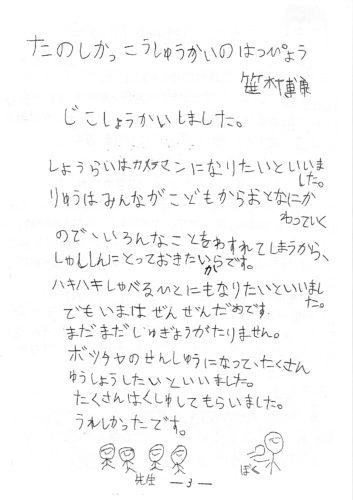 たのしかっこうしゅうかいのはっぴょう
笹村博康
じこしょうかいしました。
しょうらいはカメラマンになりたいといいま
した。
りゆうはみんながこどもからおとなにか
わっていく
ので、いろんなことをわすれてしまうから、
しゃしんにとっておきたいからです。
ハキハキしゃべるひとにもなりたいといいまし
た。
でもいまはぜんぜんだめです。
まだまだじゅぎょうがたりません。
ボッチャのせんしゅうになって、たくさん
ゆうしょうしたいといいました。
たくさんはくしゅしてもらいました。
うれしかったです。
先生
ぼく
—3—